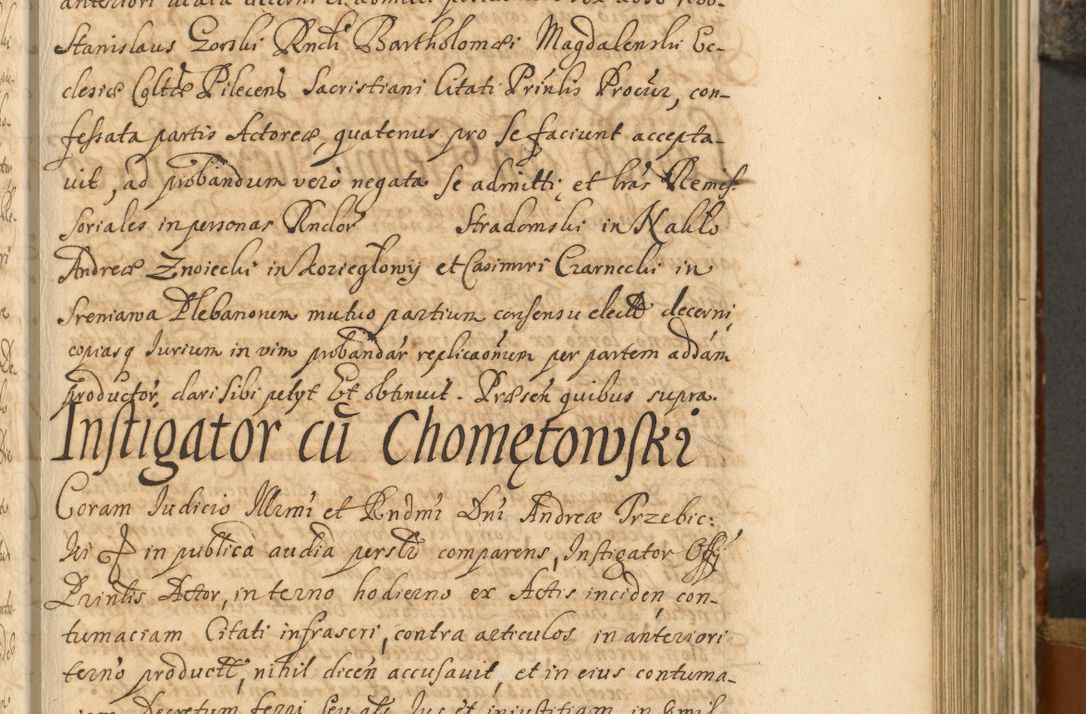 Stanislaus Gorski Rndi Bartholomæi Magdalenski Ec-
clesiæ Coltæ Pilecens Sacristiani Citati Prinlis Procur, con-
fessata partis Actoreæ, quatenus pro se faciunt accepta-
vit, ad probandum vero negata se admitti, et lras Remis-
soriales in personas Rndor Stradomski in Nakło
Andreæ Znoiecki in Koziegłowij et Casimiri Czarnecki in
Sreniawa Plebanorum mutuo partium consensu elect decerni
copiasq Iurium in vim probandar replicaonum per partem addam
productor dari sibi petyt Et obtinuit. Præsen quibus supra.
Instigator cū Chomętowski
Coram Iudicio Illrmi et Rndmi Dni Andreæ Trzebic:
ki in publica audia personlr comparens, Instigator Offij
Prinlis Actor, in terno hodierno ex Actis inciden con-
tumaciam Citati infrascri, contra articulos in anteriori
terno product, nihil dicen accusavit, et in eius contuma-
Decretum ferri seu ale Ius et iniustitiam in